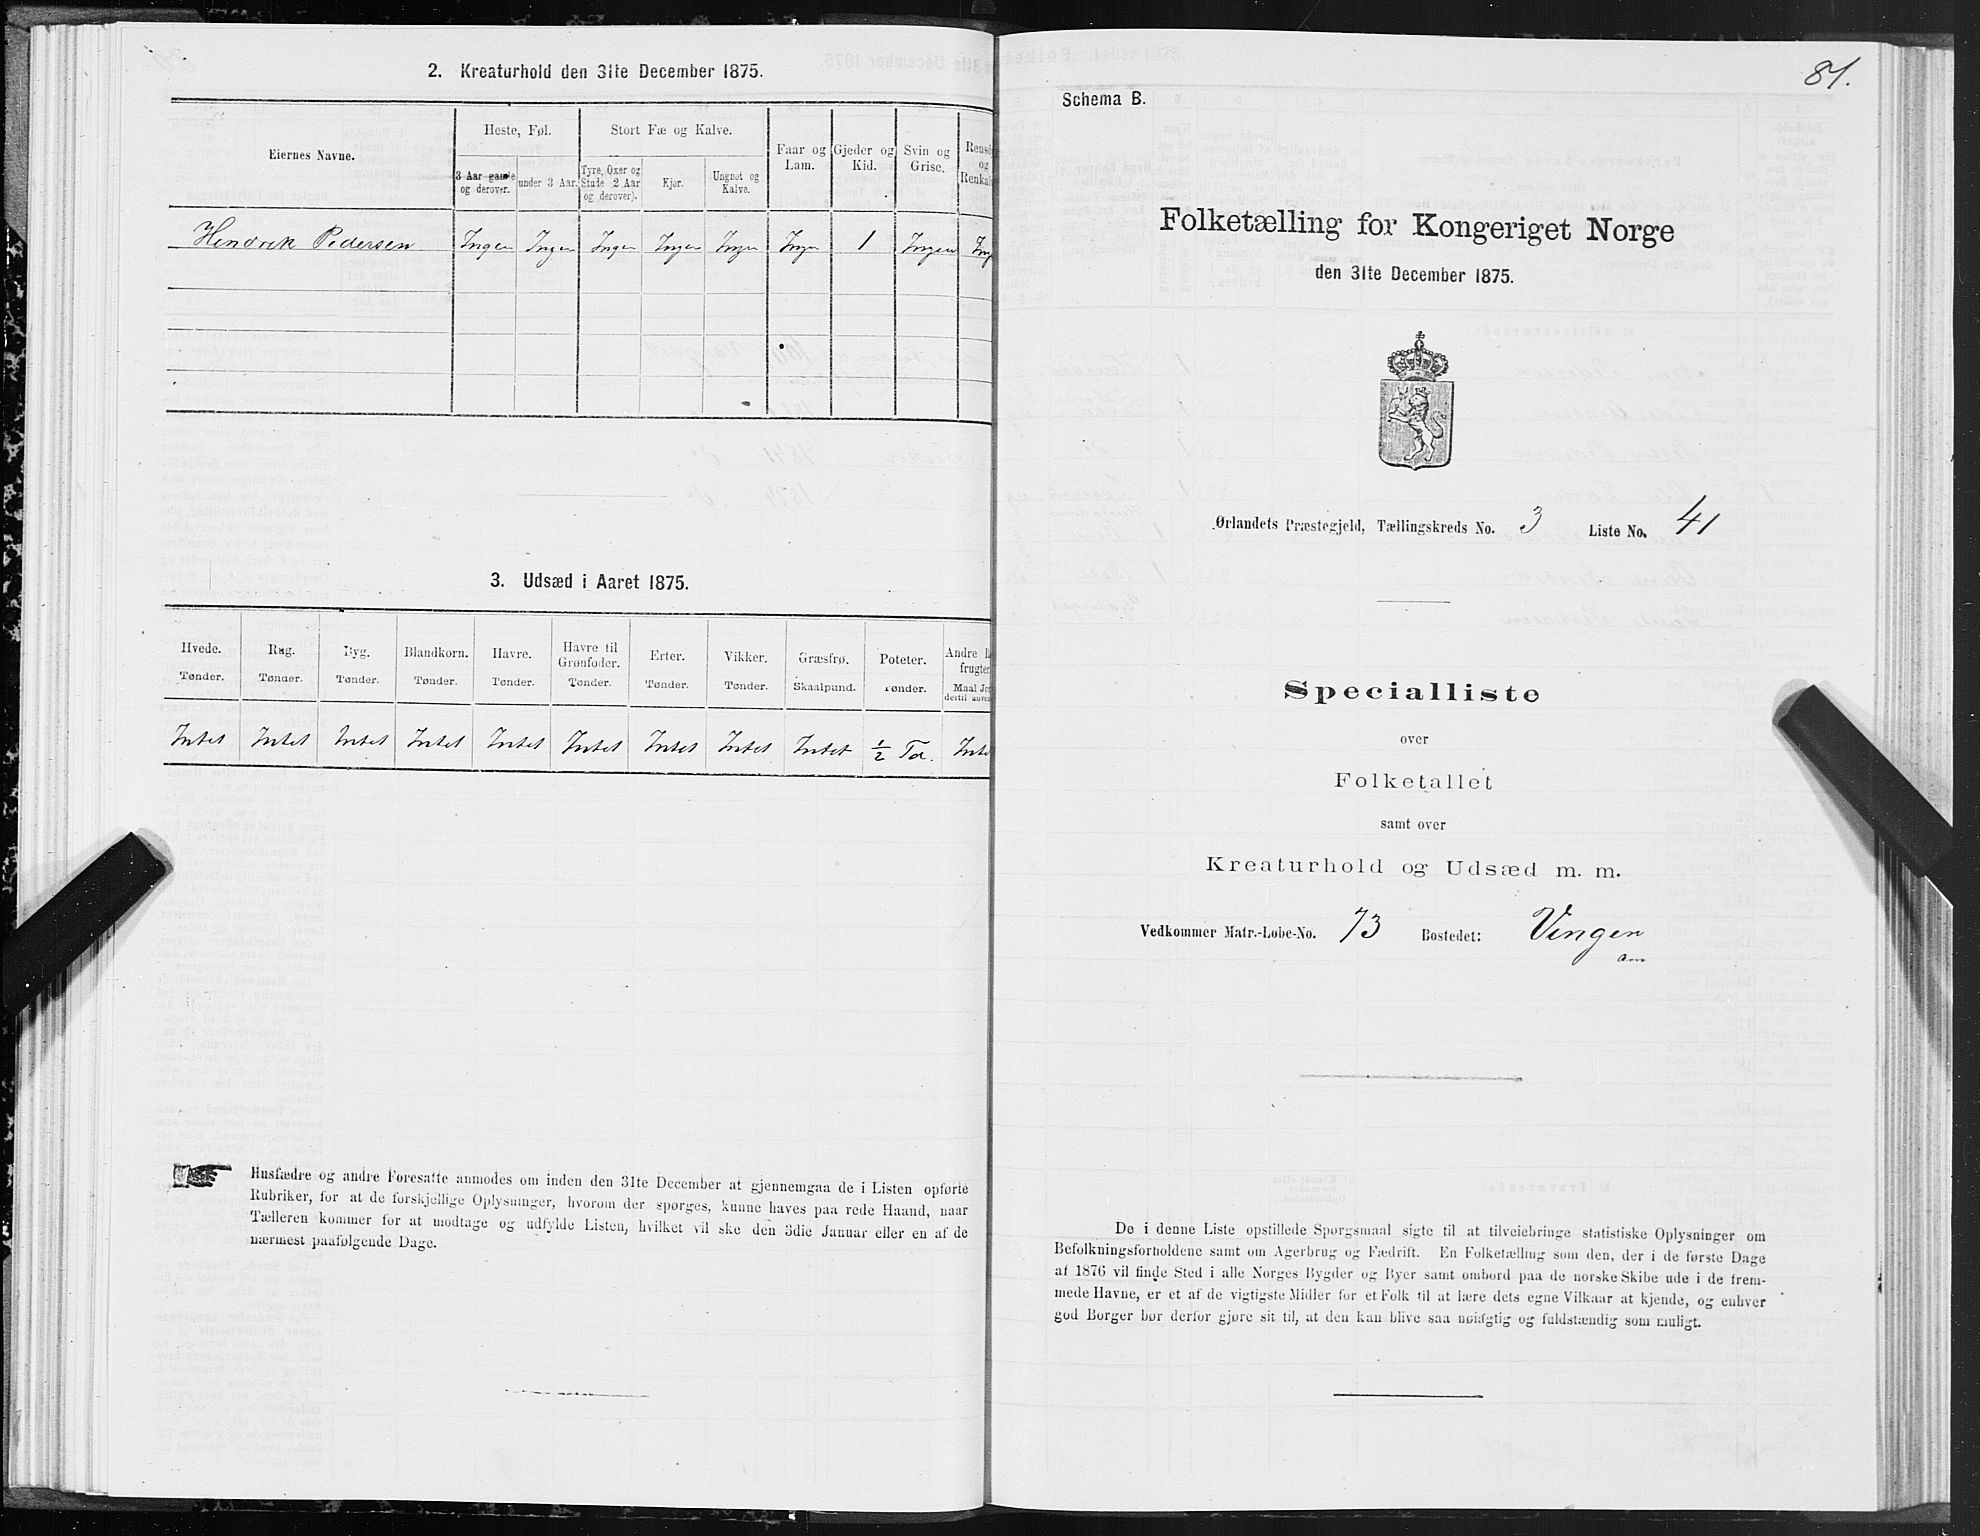 2. Kreaturhold den 31te December 1875.
Eiernes Navne.
Heste, Føl.
Stort Fæ og Kalve.
Faar og Lam.
Gjeder og Kid.
Svin og Grise.
Rensd
og
Renkal
3 Aar gamle og derover.
under 3 Aar.
Tyre, Oxer og Stude 2 Aar og derover).
Kjør.
Ungnøt og Kalve.
Hendrik Pedersen Ingen Ingen Ingen Ingen Ingen Ingen 1 Ingen Ing
3. Udsæd i Aaret 1875.
Hvede. Rug. Byg. Blandkorn. Havre. Havre til Grønfoder. Erter. Vikker. Græsfrø. Poteter. Andre
frugter
Tønder. Tønder. Tønder. Tønder. Tønder. Tønder. Tønder. Tønder. Skaalpund. Tønder. Maal Jo
dertil anven
Intet Intet Intet Intet Intet Intet Intet Intet Intet ½ Td. Inte
Husfædre og andre Foresatte anmodes om inden den 31te December at gjennemgaa de i Listen opførte
Rubriker, for at de forskjellige Oplysninger, hvorom der spørges, kunne haves paa rede Haand, naar
Tælleren kommer for at modtage og udfylde Listen, hvilket vil ske den 3die Januar eller en af de
nærmest paafølgende Dage.
81.
Schema B.
Folketælling for Kongeriget Norge
den 31te December 1875.
Ørlandets Præstegjeld, Tællingskreds No. 3 Liste No. 41
Specialliste
over
Folketallet
samt over
Kreaturhold og Udsæd m. m.
Vedkommer Matr.-Løbe-No. 73 Bostedet: Vingen
De i denne Liste opstillede Spørgsmaal sigte til at tilveiebringe statistiske Oplysninger om
Befolkningsforholdene samt om Agerbrug og Fædrift. En Folketælling som den, der i de første Dage
af 1876 vil finde Sted i alle Norges Bygder og Byer samt ombord paa de norske Skibe ude i de frem-
mede Havne, er et af de vigtigste Midler for et Folk til at lære dets egne Vilkaar at kjende, og enhver
god Borger bør derfor gjøre sit til, at den kan blive saa nøiagtig og fuldstændig som muligt.